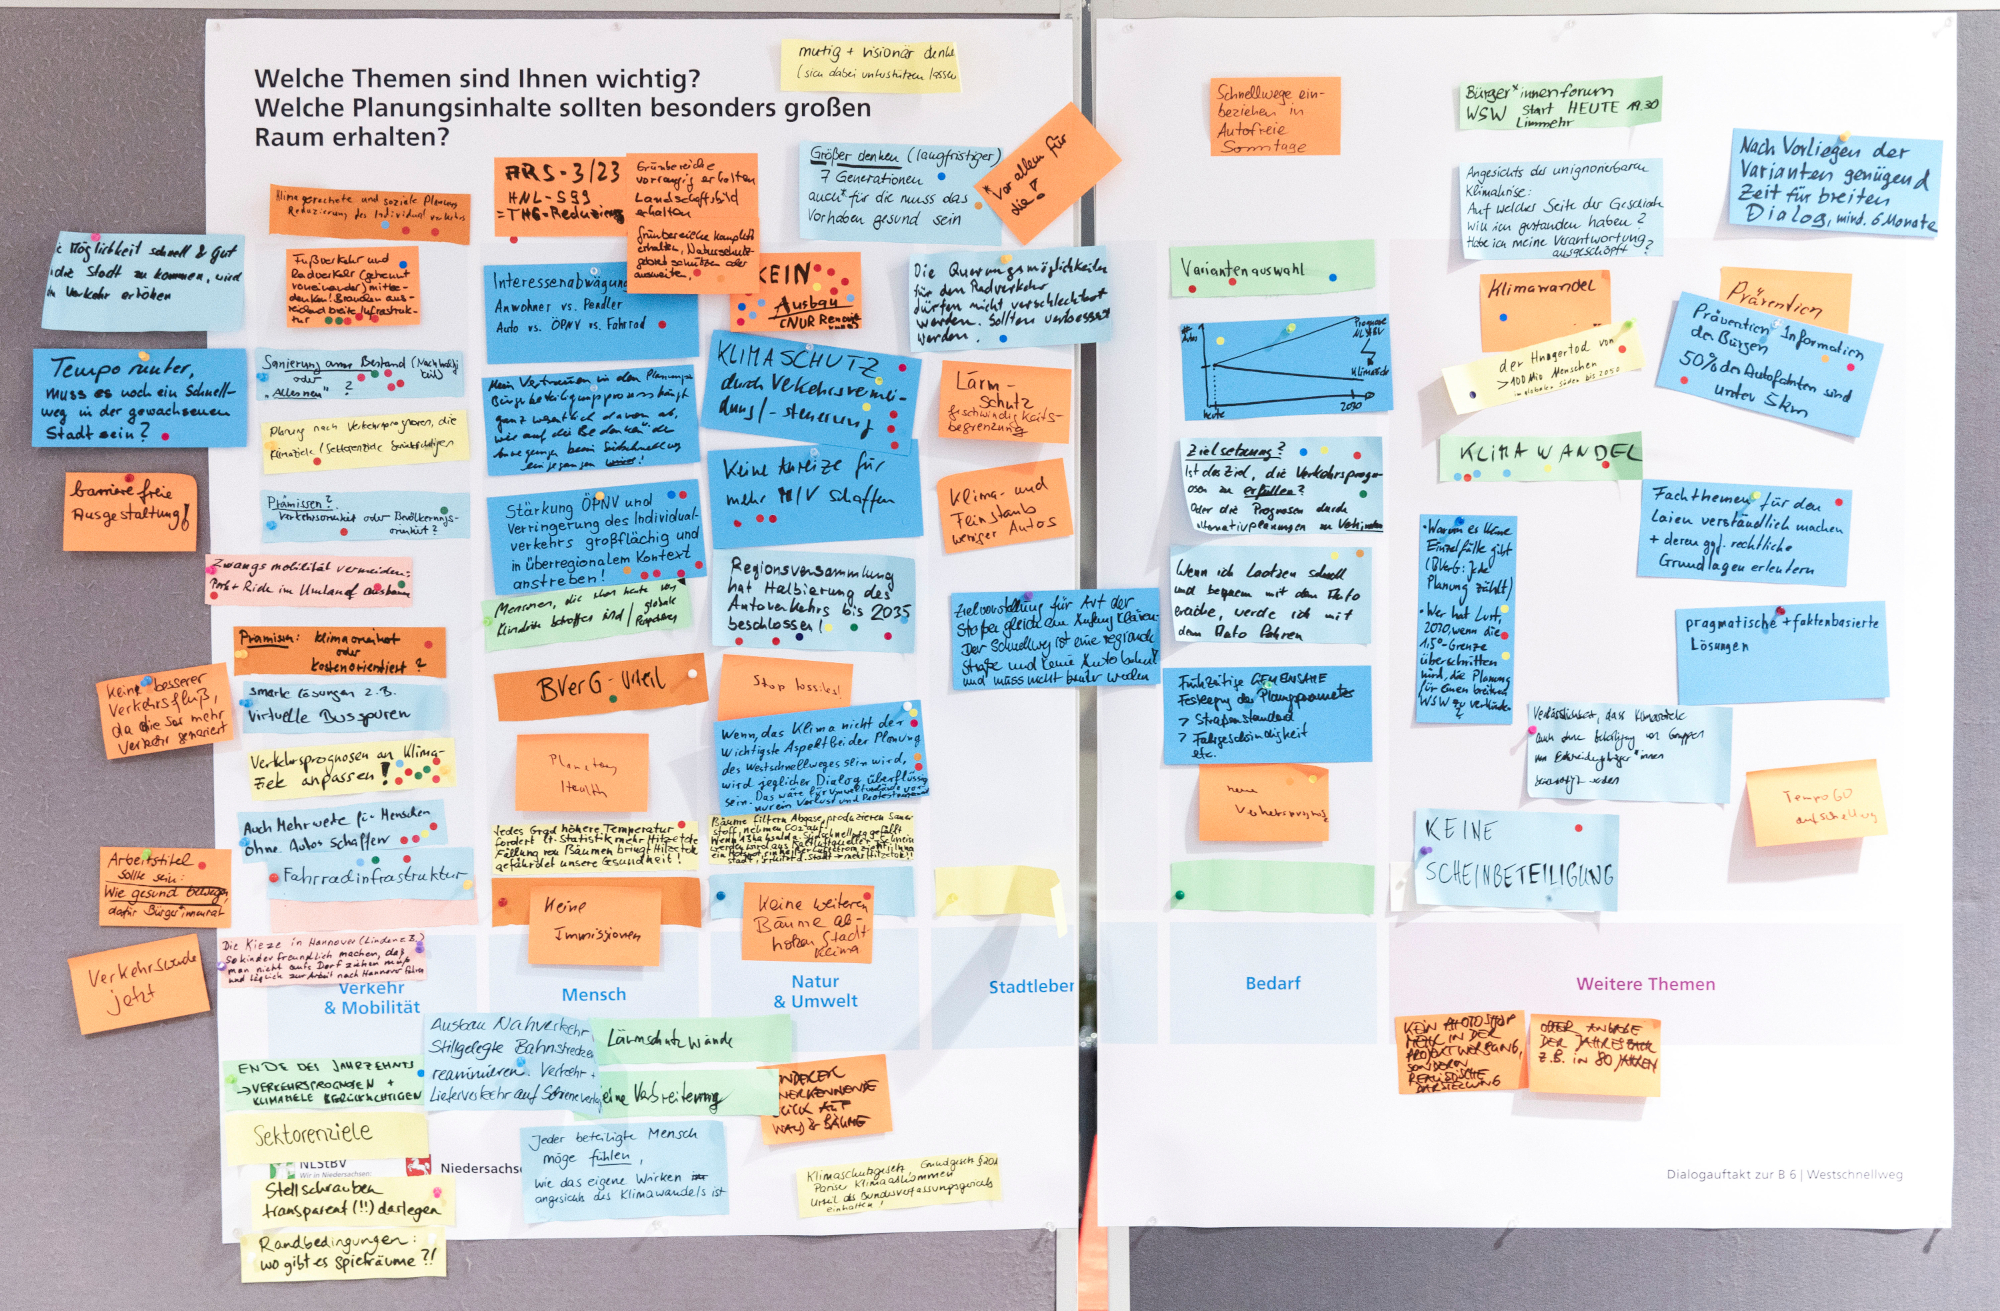 Welche Themen sind Ihnen wichtig?
Welche Planungsinhalte sollten besonders großen
Raum erhalten?
mutig + visionär denke
(sich dabei unterstützen lassen
Klimagerechte und soziale Planung
Reduzierung des Individualverkehrs
Möglichkeit schnell & gut
die Stadt zu kommen, wird
Verkehr erhöhen
Tempo runter,
muss es noch ein Schnell-
weg in der gewachsenen
Stadt sein?
barrierefreie
Ausgestaltung!
Keine besserer
Verkehrsfluß,
da die Str mehr
Verkehr generiert
Arbeitstitel
sollte sein:
Wie gesund bewegen
dafür Bürger*innenrat
Verkehrswende
jetzt
Fußverkehr und
Radverkehr (getrennt
voneinander) mitbe-
denken! Brauchen aus-
reichend breite Infrastruk-
tur
Sanierung am Bestand (Nachhaltig
oder
"Alles neu" ?
Planung nach Verkehrsprognosen, die
Klimaziele / Sektorenziele berücksichtigen
Prämissen?
Verkehrsorientiert oder Bevölkerungs-
orientiert?
Zwangsmobilität vermeiden:
Park + Ride im Umland ausbauen
Prämissen: klimaorientiert
oder
kostenorientiert?
smarte Lösungen z.B.
virtuelle Busspuren
Verkehrsprognosen an Klima-
Ziele anpassen!
Auch Mehrwerte für Menschen
Ohne Autos schaffen
Fahrradinfrastruktur
Die Kieze in Hannover (Linden z.B.)
so kinderfreundlich machen, daß
man nicht aufs Dorf ziehen muß
und täglich zur Arbeit nach Hannover fahren
Verkehr
& Mobilität
ARS-3/23
HNL-S99
=THG-Reduzierung
Grünbereiche
vorrangig erhalten
Landschaftsbild
erhalten
Grünbereiche komplett
erhalten, Naturschutz-
gebiet schützen oder
ausweiten.
Interessenabwägung
Anwohner vs. Pendler
Auto vs. ÖPNV vs. Fahrrad
Mein Vertrauen in den Planungs-
Bürgerbeteiligungsprozess hängt
ganz wesentlich davon ab,
wie auf die Bedenken der
beim Südschnellweg
eingegangen wird!
Stärkung ÖPNV und
Verringerung des Individual-
verkehrs großflächig und
in überregionalem Kontext
anstreben!
Menschen, die schon heute von
Klimakrise betroffen sind / globale
Perspektiven
BVerG-Urteil
Planetary
Health
Jedes Grad höhere Temperatur
fordert lt. Statistik mehr Hitzetote
Fällung von Bäumen bringt Hitzetote
gefährdet unsere Gesundheit!
Keine
Immissionen
Mensch
Größer denken (langfristiger)
7 Generationen
auch* für die muss das
Vorhaben gesund sein
*vor allem für
die!
KEIN
Ausbau
(NUR Renovie
KLIMASCHUTZ
durch Verkehrsvermei-
dung/-steuerung
Keine Anreize für
mehr MIV schaffen
Regionsversammlung
hat Halbierung des
Autoverkehrs bis 2035
beschlossen!
Stop fossiles!
Wenn, das Klima nicht der
wichtigste Aspekt bei der Planung
des Westschnellweges sein wird,
wird jeglicher Dialog überflüssig
sein. Das wäre für Umweltverbände vor
nur ein Vorlust und Protest
Bäume filtern Abgase, produzieren Sauer
stoff, nehmen CO2 auf.
Keine weiteren
Bäume ab-
holzen Stadt
Klima
Natur
& Umwelt
Die Querungsmöglichkeiten
für den Radverkehr
dürfen nicht verschlechtert
werden. Sollten verbessert
werden.
Lärm-
schutz
geschwindigkeits-
begrenzung
Klima- und
Feinstaub
weniger Autos
Zielvorstellung für Art der
Straße gleich am Anfang klären.
Der Schnellweg ist eine regionale
Straße und keine Autobahn!
und muss nicht breiter werden
Stadtleben
ENDE DES JAHRZEHNTS
→ VERKEHRSPROGNOSEN +
KLIMAZIELE BERÜCKSICHTIGEN
Ausbau Nahverkehr
Stillgelegte Bahnstrecken
reanimieren. Verkehr +
Lieferverkehr auf Schiene verlag
Lärmschutzwände
eine Verbreiterung
WALD & BÄUME
Sektorenziele
NLStBV
Wir in Niedersachsen
Niedersachs
Stellschrauben
transparent (!!) darlegen
Randbedingungen:
wo gibt es Spielräume?!
Jeder beteiligte Mensch
möge fühlen,
wie das eigene Wirken
angesichts des Klimawandels ist
Klimaschutzgesetz, Grundgesetz §20a
Pariser Klimaabkommen
Urteil des Bundesverfassungsgerichts
einhalten!
Schnellwege ein-
beziehen in
Autofreie
Sonntage
Variantenauswahl
# Autos
Prognose
NLStBV
Klimaziele
heute
2030
Zielsetzung?
Ist das Ziel, die Verkehrsprogn-
osen zu erfüllen?
Oder die Prognosen durch
Alternativplanungen zu verhindern
Wenn ich Laatzen schnell
und bequem mit dem Auto
erreiche, werde ich mit
dem Auto fahren
Frühzeitige GEMEINSAME
Festlegung der Planparameter
> Straßenstandard
> Fahrgeschwindigkeit
etc.
neue
Verkehrsprognose
Bedarf
Bürger*innenforum
WSW Start HEUTE 19.30
Limmehr
Angesichts der unignorierbaren
Klimakrise:
Auf welcher Seite der Geschichte
will ich gestanden haben?
Habe ich meine Verantwortung
ausgeschöpft?
Klimawandel
der Hungertod von
>100 Mio Menschen
im globalen Süden bis 2050
KLIMAWANDEL
• Warum es keine
Einzelfälle gibt
(BVerG: jede
Planung zählt)
• Wer hat Lust,
2030, wenn die
1,5°-Grenze
überschritten
wird, die Planung
für einen breiteren
WSW zu verkünden
?
Verlässlichkeit, dass Klimaziele
auch ohne Beteiligung von Gruppen
von Entscheidungsträger*innen
berücksichtigt werden
KEINE
SCHEINBETEILIGUNG
Nach Vorliegen der
Varianten genügend
Zeit für breiten
Dialog, mind. 6 Monate
Prävention
Prävention Information
der Bürger
50% der Autofahrten sind
unter 5km
Fachthemen für den
Laien verständlich machen
+ deren ggf. rechtliche
Grundlagen erläutern
pragmatische + faktenbasierte
Lösungen
Tempo 60
auf Schnellweg
Weitere Themen
KEIN PHOTOSHOP
MEHR IN DER
PROJEKTWERBUNG,
SONDERN
REALISTISCHE
DARSTELLUNG
ODER ANGABE
DER JAHRESZAHL
Z.B. IN 80 JAHREN
Dialogauftakt zur B 6 | Westschnellweg